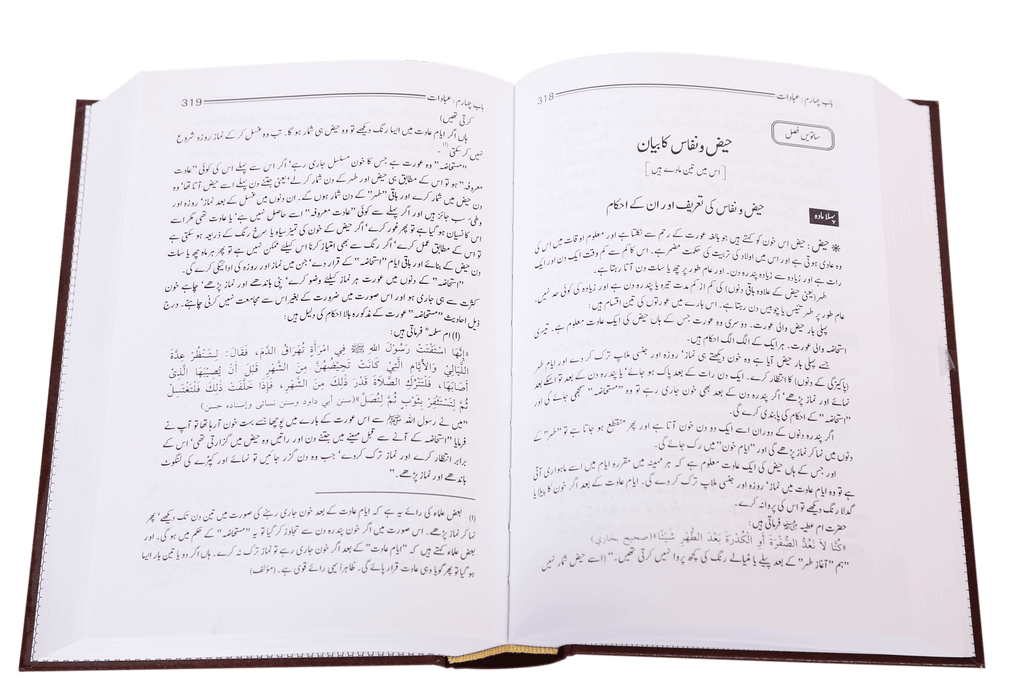 باب چہارم: عبادات 318
ساتویں فصل
حیض و نفاس کا بیان
[ اس میں تین مادے ہیں ]
پہلا مادہ
حیض و نفاس کی تعریف اور ان کے احکام
❋ حیض : حیض اس خون کو کہتے ہیں جو بالغہ عورت کے رحم سے نکلتا ہے اور معلوم اوقات میں اس کی
وہ عادی ہوتی ہے اور اس میں اولاد کی تربیت کی حکمت مضمر ہے۔ اس کا کم سے کم وقت ایک دن اور ایک
رات ہے اور زیادہ سے زیادہ پندرہ دن۔ اور عام طور پر چھ یا سات دن آتا رہتا ہے۔
طہر (یعنی حیض کے علاوہ باقی دنوں) کی کم از کم مدت تیرہ یا پندرہ دن ہے اور زیادہ کی کوئی حد نہیں۔
عام طور پر طہر تئیس یا چوبیس دن رہتا ہے۔ اس بارے میں عورتوں کی تین اقسام ہیں:
پہلی بار حیض والی عورت۔ دوسری وہ عورت جس کے ہاں حیض کی ایک عادت معلوم ہے۔ تیسری
استحاضہ والی عورت۔ ہر ایک کے الگ الگ احکام ہیں۔
جسے پہلی بار حیض آیا ہے وہ خون دیکھتے ہی نماز' روزہ اور جنسی ملاپ ترک کر دے اور ایام طہر
(پاکیزگی کے دنوں) کا انتظار کرے۔ ایک دن رات کے بعد پاک ہو جائے' یا پندرہ دن کے بعد تو اسکے بعد
نہائے اور نماز پڑھے' اگر پندرہ دن کے بعد بھی خون جاری رہے تو وہ "مستحاضہ" سمجھی جائے گی اور
"استحاضہ" کے احکام کی پابندی کرے گی۔
اگر پندرہ دنوں کے دوران اسے ایک دو دن خون آتا ہے اور پھر منقطع ہو جاتا ہے تو "طہر" کے
دنوں میں نہا کر نماز پڑھے گی اور "ایام خون" میں رک جائے گی۔
اور جس کے ہاں حیض کی ایک عادت معلوم ہے کہ ہر مہینہ میں مقررہ ایام میں اسے ماہواری آتی
ہے تو وہ ایام عادت میں نماز' روزہ اور جنسی ملاپ ترک کر دے گی۔ ایام عادت کے بعد اگر خون کا پیلا یا
گدلا رنگ دیکھے تو اس کی پروا نہ کرے۔
حضرت ام عطیہ فرماتی ہیں:
«كُنَّا لاَ نَعُدُّ الصُّفْرَةَ أَوِ الْكُدْرَةَ بَعْدَ الطُّهْرِ شَيْئًا»(صحيح بخاري)
"ہم "آغاز طہر" کے بعد پیلے یا مٹیالے رنگ کی کچھ پروا نہیں کرتی تھیں۔" (اسے حیض شمار نہیں
باب چہارم: عبادات 319
کرتی تھیں)
ہاں اگر ایام عادت میں ایسا رنگ دیکھے تو وہ حیض ہی شمار ہو گا۔ تب وہ غسل کر کے نماز روزہ شروع
نہیں کر سکتی۔(۱)
"مستحاضہ" وہ عورت ہے جس کا خون مسلسل جاری رہے' اگر اس سے پہلے اس کی کوئی "عادت
معروفہ" ہو تو اس کے مطابق ہی حیض اور طہر کے دن شمار کر لے' یعنی جتنے دن پہلے اسے حیض آتا تھا' وہ
دن حیض میں شمار کرے اور باقی "طہر" کے دن شمار ہوں گے۔ ان دنوں میں غسل کے بعد نماز' روزہ اور
وطی' سب جائز ہیں اور اگر پہلے سے کوئی "عادت معروفہ" اسے حاصل نہیں ہے' یا عادت تھی مگر اسے
اس کا نسیان ہو گیا ہے تو پھر غور کرے' اگر حیض کے خون کی تمیز سیاہ یا سرخ رنگ کے ذریعہ ہو سکتی ہے
تو اس کے مطابق عمل کرے' اگر رنگ سے بھی امتیاز کرنا اس کیلئے ممکن نہیں ہے تو پھر ہر ماہ چھ یا سات
دن حیض کے بنائے اور باقی ایام "استحاضہ" کے قرار دے' جن میں نماز اور روزہ کی ادائیگی کرے گی۔
"استحاضہ" کے دنوں میں عورت ہر نماز کیلئے وضو کرے' پٹی باندھے اور نماز پڑھے' چاہے خون
کثرت سے ہی جاری ہو اور اس صورت میں ضرورت کے بغیر اس سے مجامعت نہیں کرنی چاہئے۔ درج
ذیل احادیث "مستحاضہ" عورت کے مذکورہ بالا احکام کی دلیل ہیں:
(۱) ام سلمہ فرماتی ہیں:
«إِنَّهَا اسْتَفْتَتْ رَسُولَ اللهِ ﷺ فِي امْرَأَةٍ تُهَرَاقُ الدَّمَ، فَقَالَ: لِتَنْظُرْ عِدَّةَ
اللَّيَالِيْ وَالأَيَّامِ الَّتِيْ كَانَتْ تَحِيضُهُنَّ مِنَ الشَّهْرِ قَبْلَ أَنْ يُصِيْبَهَا الَّذِيْ
أَصَابَهَا، فَلْتَتْرُكِ الصَّلاَةَ قَدْرَ ذٰلِكَ مِنَ الشَّهْرِ، فَإِذَا خَلَّفَتْ ذٰلِكَ فَلْتَغْتَسِلْ
ثُمَّ لْتَسْتَثْفِرْ بِثَوْبٍ ثُمَّ لْتُصَلِّ»(سنن أبي داود وسنن نسائي وإسناده حسن)
"میں نے رسول اللہ ﷺ سے اس عورت کے بارے میں پوچھا جسے بہت خون آ رہا تھا تو آپ نے
فرمایا "استحاضہ کے آنے سے قبل مہینے میں جتنے دن اور راتیں وہ حیض میں گزارتی تھی' اس کے
برابر انتظار کرے اور نماز ترک کر دے' جب وہ دن گزر جائیں تو نہائے اور کپڑے کی لنگوٹ
باندھے اور نماز پڑھے۔"
(۱) بعض علماء کی رائے یہ ہے کہ ایام عادت کے بعد اگر خون جاری رہنے کی صورت میں تین دن تک دیکھے' پھر
نہا کر نماز پڑھے۔ اس صورت میں اگر خون پندرہ دن سے تجاوز کر گیا تو یہ "مستحاضہ" کے حکم میں ہو گی۔ اور
بعض علماء کہتے ہیں کہ "ایام عادت" کے بعد اگر خون جاری رہے تو نماز ترک نہ کرے۔ ہاں اگر دو یا تین بار ایسا
ہو گیا تو پھر گویا وہی عادت قرار پائے گی۔ ظاہراً یہی رائے قوی ہے۔ (مؤلف)